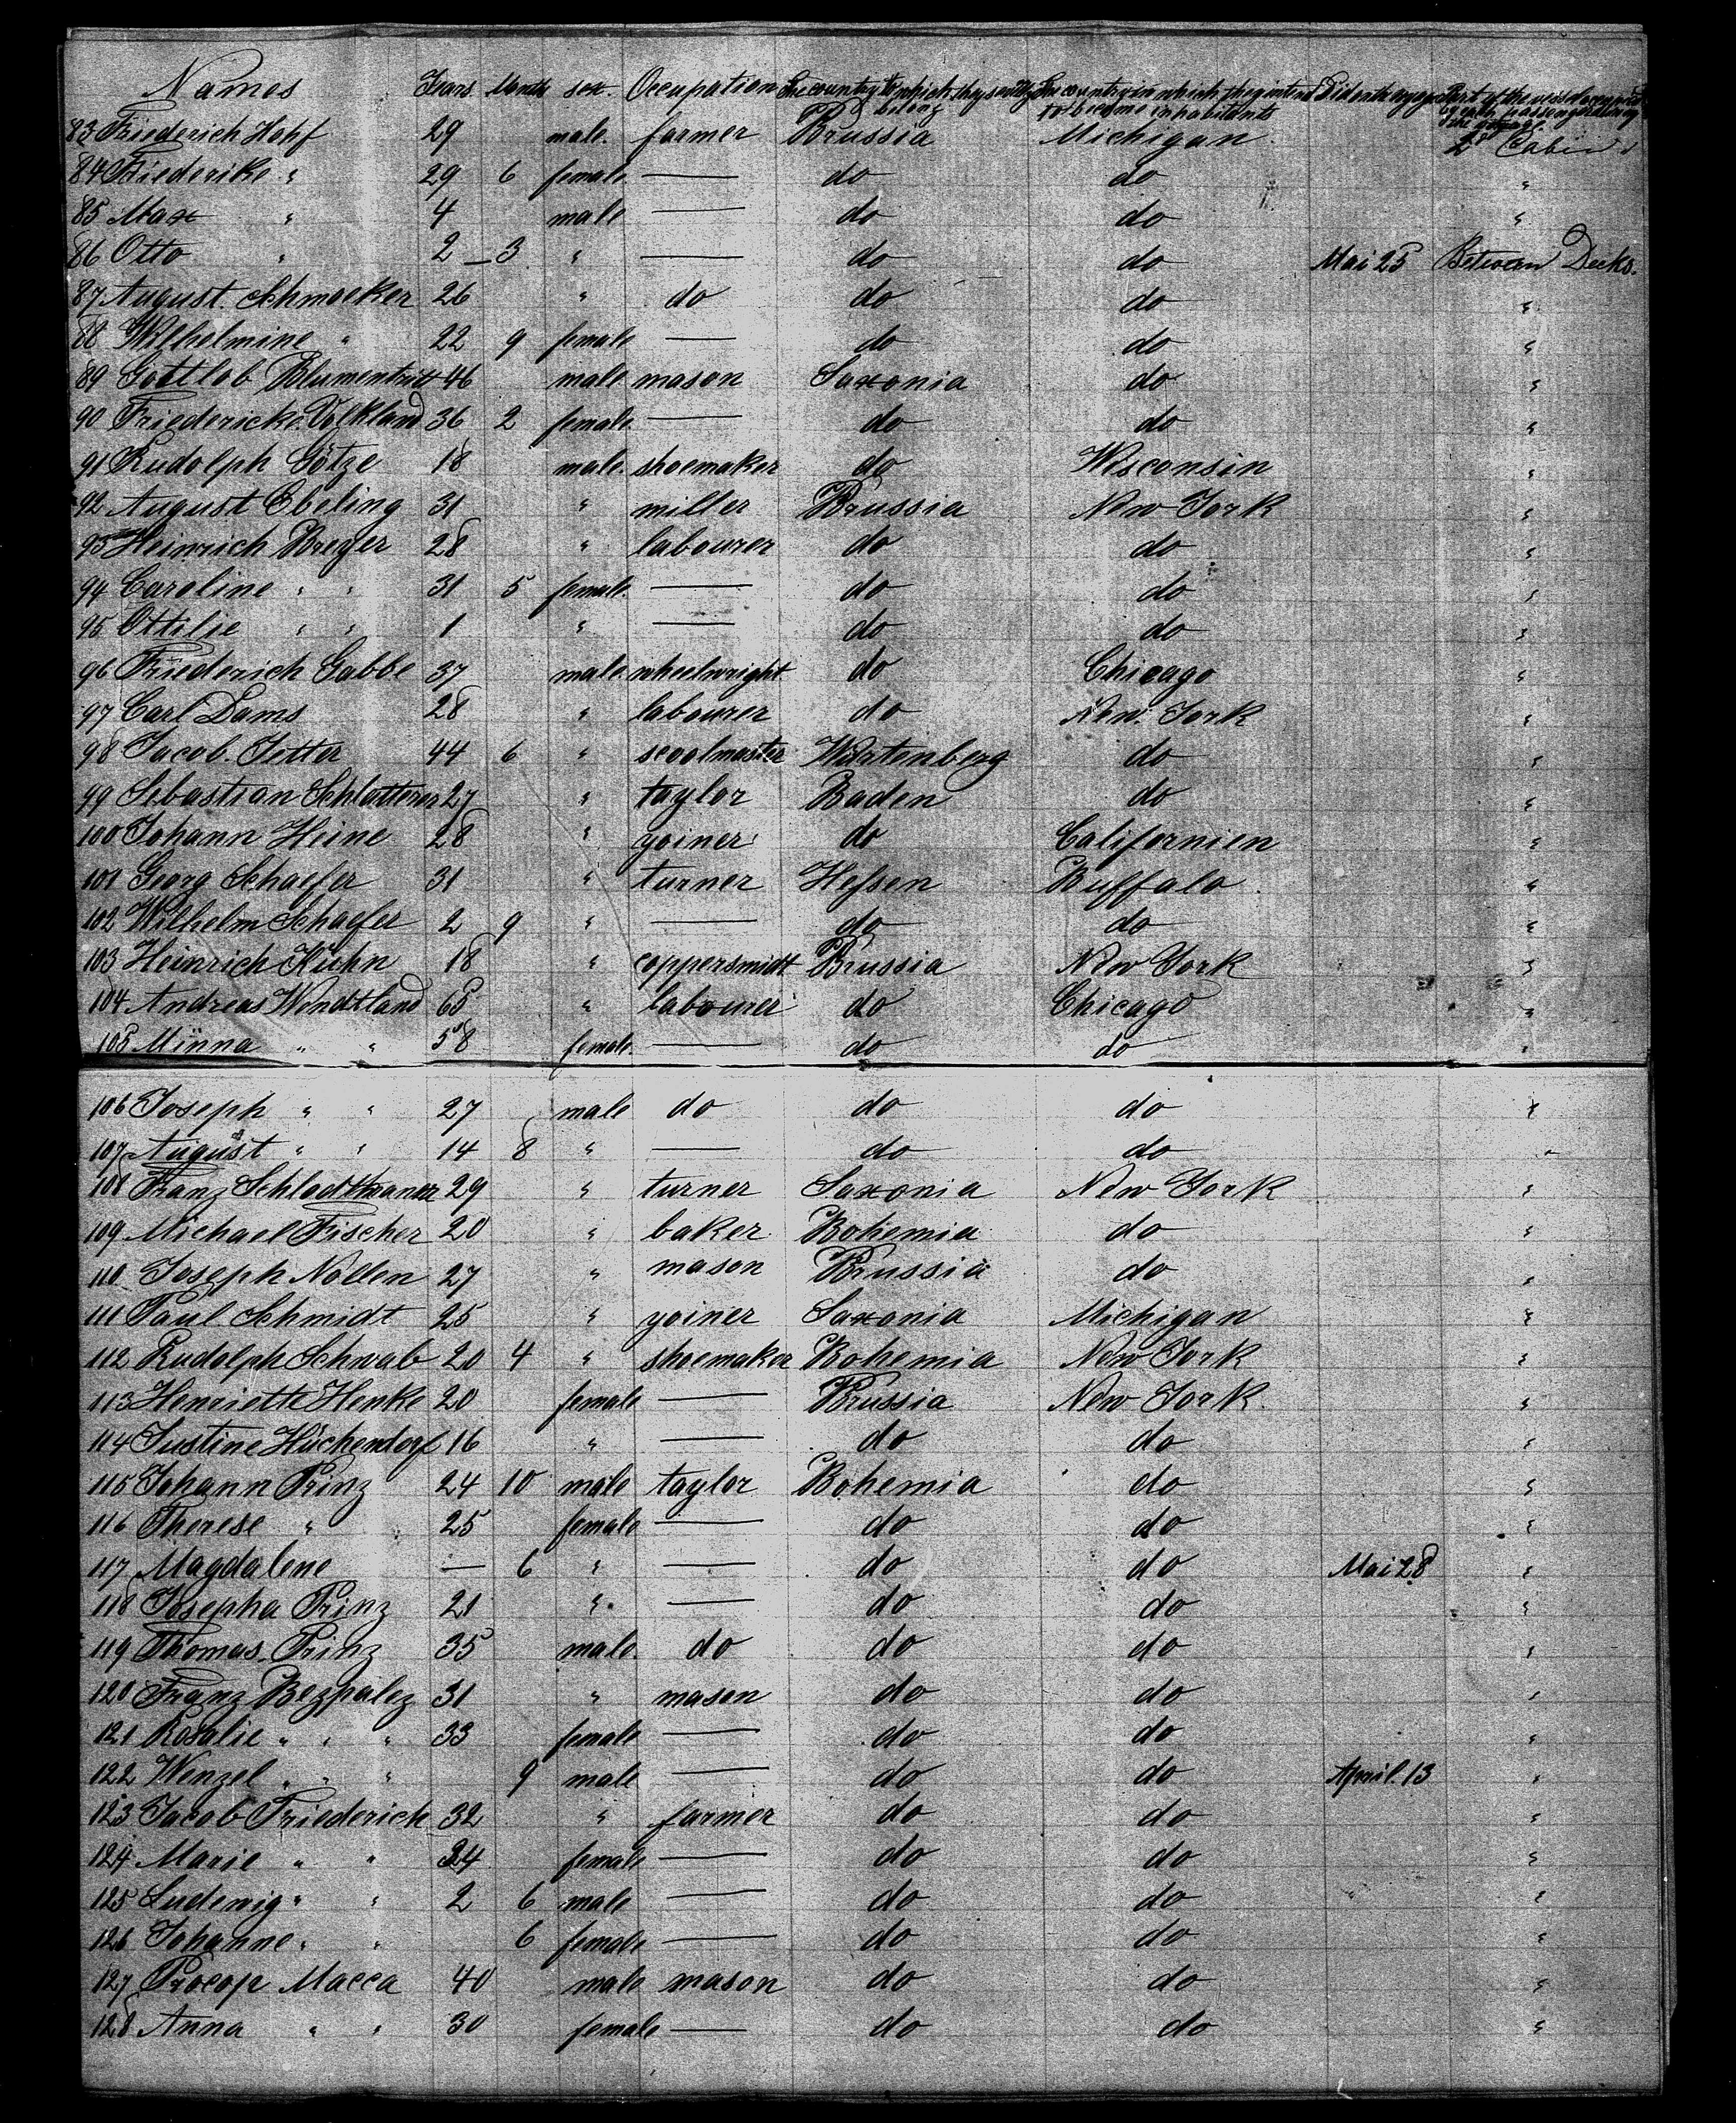 Names Years Month sex. Occupation The country to which they sevelly belong The country in which they intend to become inhabitants Died on the voyage Part of the vessel occupied by each passenger during the voyage
83 Friederich Hopf 29 male. farmer Prussia Michigan. 2d Cabin
84 Friederike " 29 6 female — do do "
85 Max " 4 male — do do "
86 Otto " 2 — 3 " — do do Mai 25 Between Decks.
87 August. Schmoeker 26 " do do do "
88 Wilhelmine " 22 9 female — do do "
89 Gottlob Blumentritt 46 male mason Saxonia do "
90 Friedericke Volkland 36 2 female — do do "
91 Rudolph Götze 18 male. shoemaker do Wisconsin "
92 August Ebeling 31 " miller Prussia New York "
93 Heinrich Breyer 28 " labourer do do "
94 Caroline " " 31 5 female. — do do "
95 Ottilie " " 1 " — do do "
96 Friederich Gabbe 37 male. wheelwright do Chicago "
97 Carl Dams 28 " labourer do New. York "
98 Jacob. Jetter 44 6 " scoolmaster Würtenberg do "
99 Sebastian Schlatterer 27 " taylor Baden do "
100 Johann Heine 28 " yoiner do Californien "
101 Georg Schaefer 31 " turner Hessen Buffalo. "
102 Wilhelm Schaefer 2 9 " — do do "
103 Heinrich Kühn 18 " coppersmidt Prussia New York "
104 Andreas Wendtland 65 " labourer do Chicago "
105 Minna " " 58 female. — do do "
106 Joseph " " 27 male do do do "
107 August " " 14 8 " — do do "
108 Franz 29 " turner Saxonia New York "
109 Michael Fischer 20 " baker Bohemia do "
110 Joseph Nollen 27 " mason Prussia do "
111 Paul Schmidt 25 " yoiner Saxonia Michigan "
112 Rudolph Schwab 20 4 " shoemaker Bohemia New York "
113 Henriette Henke 20 female — Prussia New York. "
114 Justine Hückendorf 16 " — do do "
115 Johann Prinz 24 10 male taylor Bohemia do "
116 Therese " 25 female — do do "
117 Magdalene — 6 " — do do Mai 28 "
118 Josepha Prinz 21 " — do do "
119 Thomas Prinz 35 male. do do do "
120 Franz Bezpalez 31 " mason do do "
121 Rosalie " " " 33 female — do do "
122 Wenzel " " " 9 male — do do April. 13 "
123 Jacob Friederich 32 " farmer do do "
124 Marie " " 34 female — do do "
125 Ludewig " " 2 6 male — do do "
126 Johanne " " 6 female — do do "
127 Procop Macca 40 male mason do do "
128 Anna " " 30 female — do do "